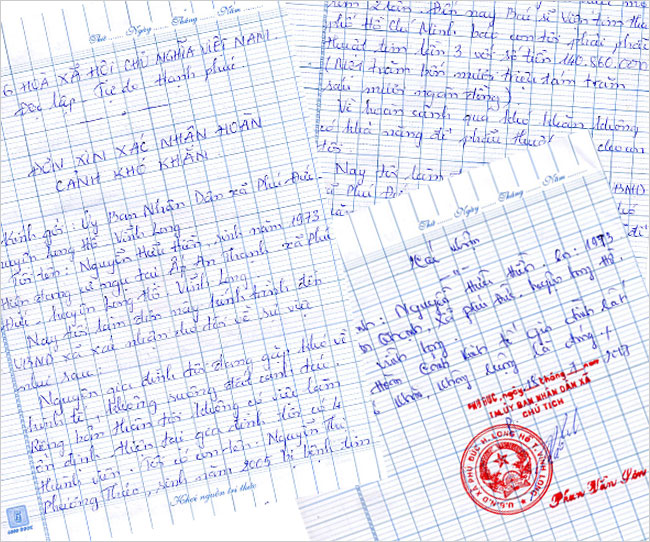 Thứ Ngày Tháng Năm
G HOÀ XÃ HỘI CHỦ NGHĨA VIỆT NAM
Độc lập - Tự do - Hạnh phúc
ĐƠN XIN XÁC NHẬN HOÀN
CẢNH KHÓ KHĂN
Kính gởi: Ủy Ban Nhân Dân xã Phú Đức
huyện Long Hồ Vĩnh Long
Tôi tên: Nguyễn Hiếu Hiền, sinh năm 1973
Hiện đang cư ngụ tại Ấp An Thạnh xã Phú
Đức - huyện Long Hồ - Vĩnh Long
Nay tôi làm đơn này kính trình đến
UBND xã xác nhận cho tôi về sự việc
như sau:
Nguyên gia đình tôi đang gặp khó về
kinh tế, không ruộng đất canh tác.
Riêng bản thân tôi không có việc làm
ổn định, hiện tại gia đình tôi có 4
thành viên. Tôi có con tên: Nguyễn Thị
Phương Thúc, sinh năm 2005 bị bệnh tim
Khơi nguồn tri thức
Đến nay Bác sĩ viện tim thu
phố Hồ Chí Minh báo con tôi phải phẫu
thuật tim lần 3 với số tiền 140.860.000
(Một trăm bốn mươi triệu tám trăm
sáu mươi ngàn đồng)
Vì hoàn cảnh quá khó khăn không
có khả năng để phẫu thuật cho con
tôi
Nay tôi làm
xã Phú Đ
UBND
Thứ Ngày Tháng Năm
Xác nhận
Nguyễn Hiếu Hiền. Sn: 1973
xã phú Đức, huyện long hồ,
Vĩnh long.
Hoàn cảnh kinh tế gia đình rất
khó khăn là đúng.
PHÚ ĐỨC, ngày 15 tháng 7 năm 2017
TM. ỦY BAN NHÂN DÂN XÃ
CHỦ TỊCH
U.B.N.D XÃ PHÚ ĐỨC H. LONG HỒ T. VĨNH LONG
Phan Văn